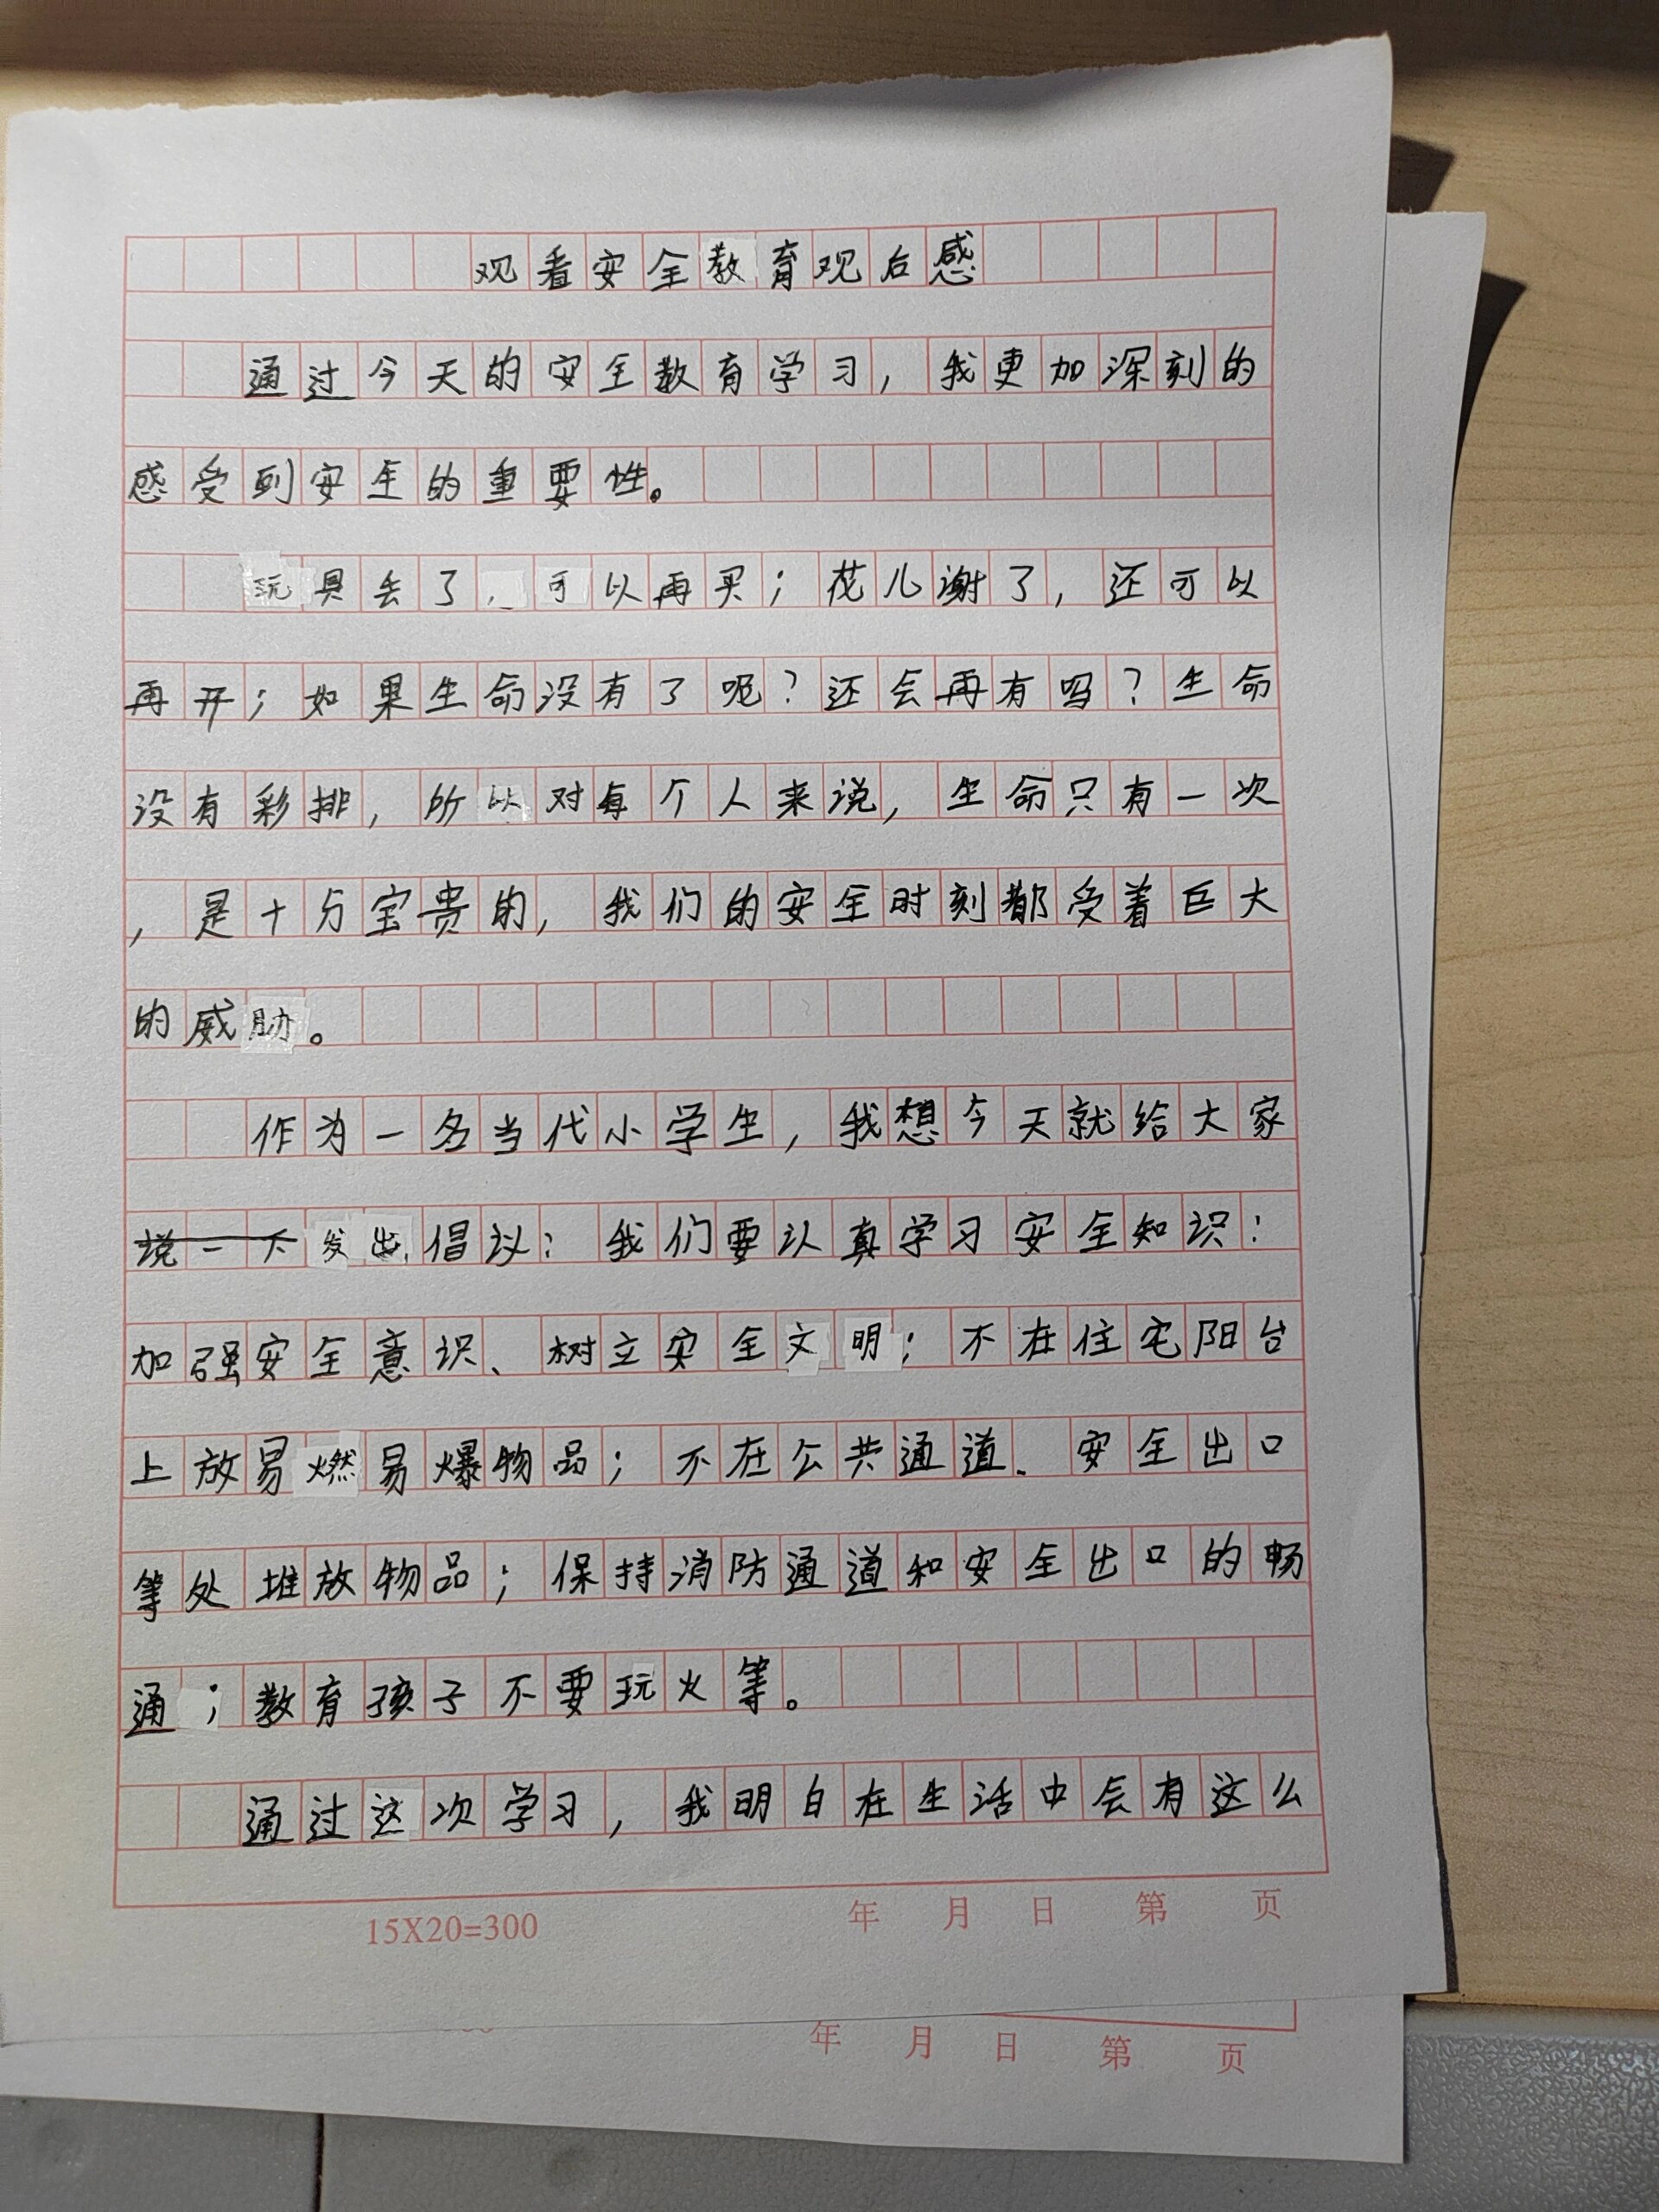 观看安全教育观后感
通过今天的安全教育学习，我更加深刻的
感受到安全的重要性。
玩具丢了，可以再买；花儿谢了，还可以
再开；如果生命没有了呢？还会再有吗？生命
没有彩排，所以对每个人来说，生命只有一次
，是十分宝贵的，我们的安全时刻都受着巨大
的威胁。
作为一名当代小学生，我想今天就给大家
说一下发出倡议：我们要认真学习安全知识：
加强安全意识、树立安全文明；不在住宅阳台
上放易燃易爆物品；不在公共通道、安全出口
等处堆放物品；保持消防通道和安全出口的畅
通；教育孩子不要玩火等。
通过这次学习，我明白在生活中会有这么
15X20=300 年 月 日 第 页
年 月 日 第 页